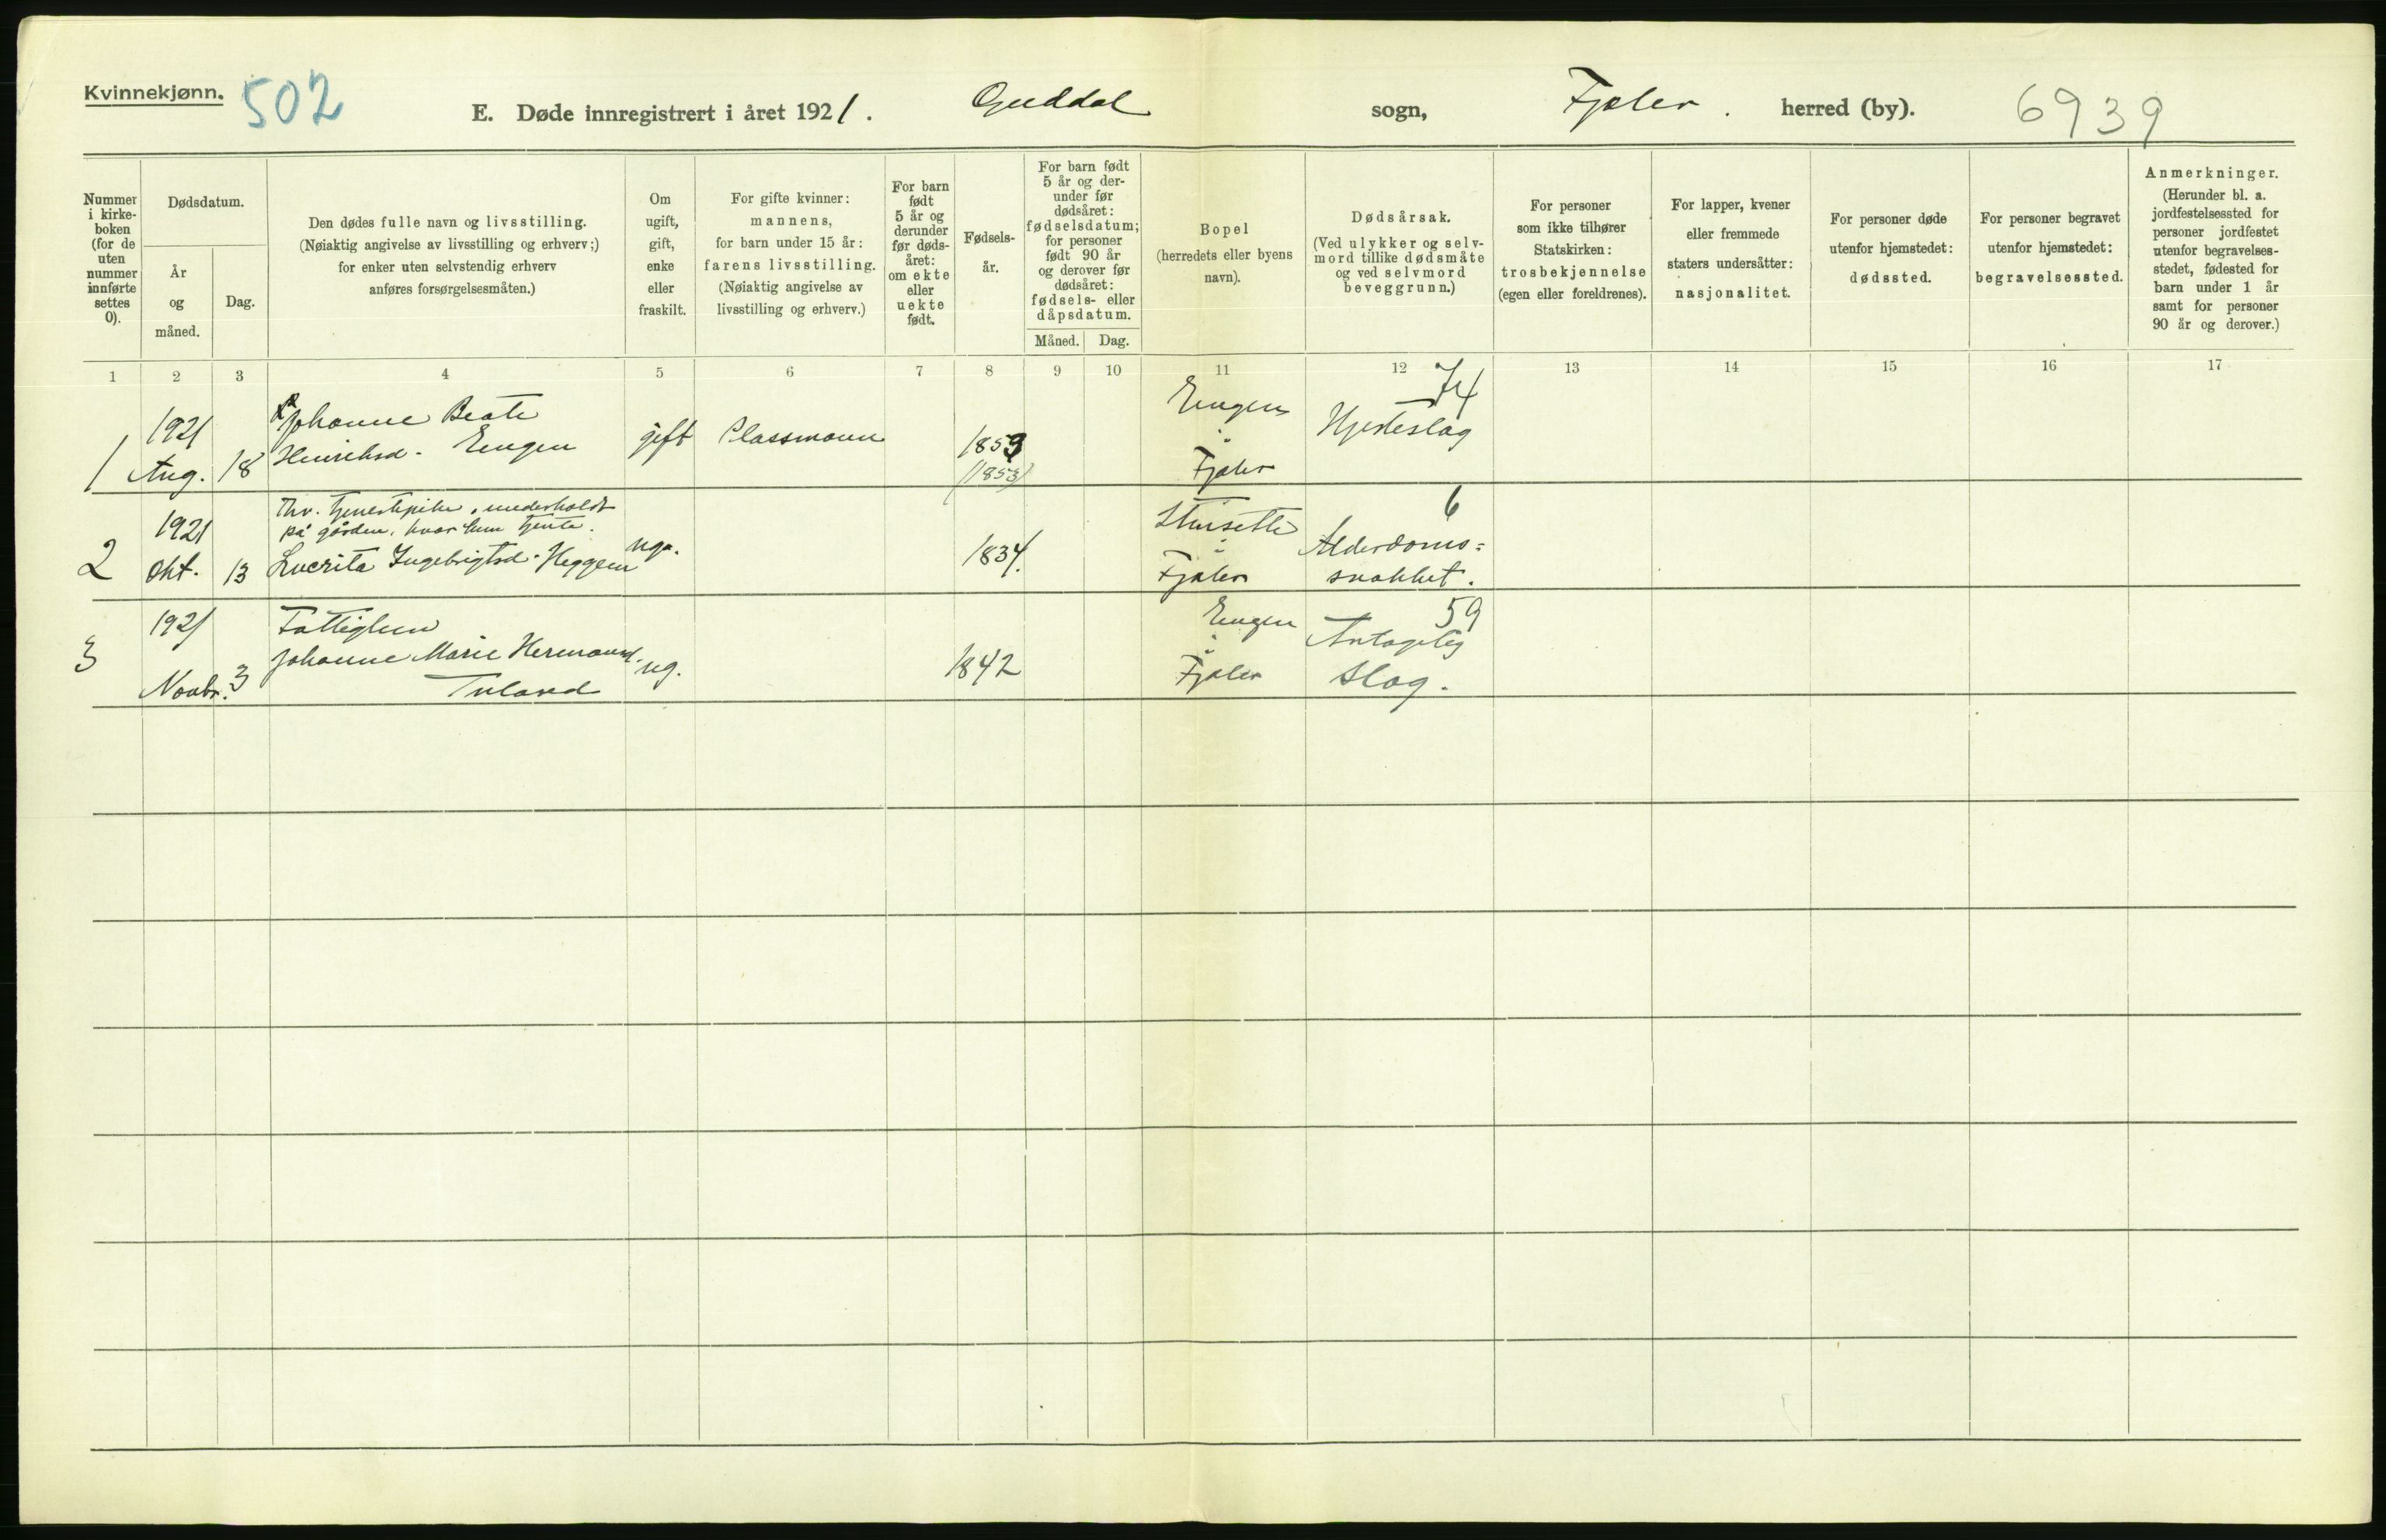 Kvinnekjønn.
502
E. Døde innregistrert i året 1921. Guddal sogn, Fjaler. herred (by).
6939
Nummer i kirke-boken (for de uten nummer innførte settes 0).
Dødsdatum.
År og måned.
Dag.
Den dødes fulle navn og livsstilling.
(Nøiaktig angivelse av livsstilling og erhverv;)
for enker uten selvstendig erhverv
anføres forsørgelsesmåten.)
Om ugift, gift, enke eller fraskilt.
For gifte kvinner:
mannens,
for barn under 15 år:
farens livsstilling.
(Nøiaktig angivelse av
livsstilling og erhverv.)
For barn født 5 år og derunder før døds-året: om ekte eller uekte født.
Fødsels-år.
For barn født 5 år og der-under før dødsåret: fødselsdatum; for personer født 90 år og derover før dødsåret: fødsels- eller dåpsdatum.
Måned.
Dag.
Bopel
(herredets eller byens
navn).
Dødsårsak.
(Ved ulykker og selv-
mord tillike dødsmåte
og ved selvmord
beveggrunn.)
For personer
som ikke tilhører
Statskirken:
trosbekjennelse
(egen eller foreldrenes).
For lapper, kvener
eller fremmede
staters undersåtter:
nasjonalitet.
For personer døde
utenfor hjemstedet:
dødssted.
For personer begravet
utenfor hjemstedet:
begravelsessted.
Anmerkninger.
(Herunder bl. a.
jordfestelsessted for
personer jordfestet
utenfor begravelses-
stedet, fødested for
barn under 1 år
samt for personer
90 år og derover.)
1 2 3 4 5 6 7 8 9 10 11 12 13 14 15 16 17
1
1921
Aug. 18
Johanne Beate
Henriksd. Engen
gift
Plassmann
1853
(1853)
Engen
"
Fjaler
74
Hjerteslag
2
1921
Okt. 13
Thv. tjenestepike, underholdt
på gården, hvor hun tjente.
Lucrita Ingebrigtsd. Heggem
ug.
1834.
Fjaler
6
Alderdoms=
svakhet.
3
1921
Novbr. 3
Fattiglem
Johanne Marie Hermansd.
ug.
1842
Engen
"
Fjaler
59
Antagelig
Slag.